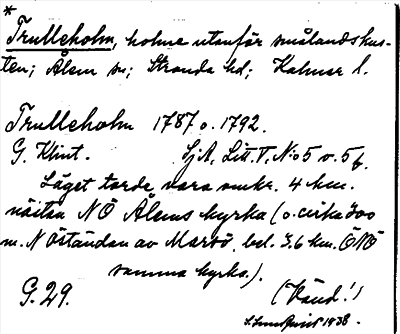 *
Trulleholm, holme utanför smålandskus-
ten; Ålem sn; Stranda hd; Kalmar l.
Trulleholm 1787 o. 1792.
G. Klint. SjA, Litt. V. No 5 o. 5b.
Läget torde vara omkr. 4 km.
nästan NÖ Ålems kyrka (o. cirka 300
m. N öständan av Marsö, bel. 3.6 km. ÖNÖ
samma kyrka.).
G. 29. (Vänd!)
1938.